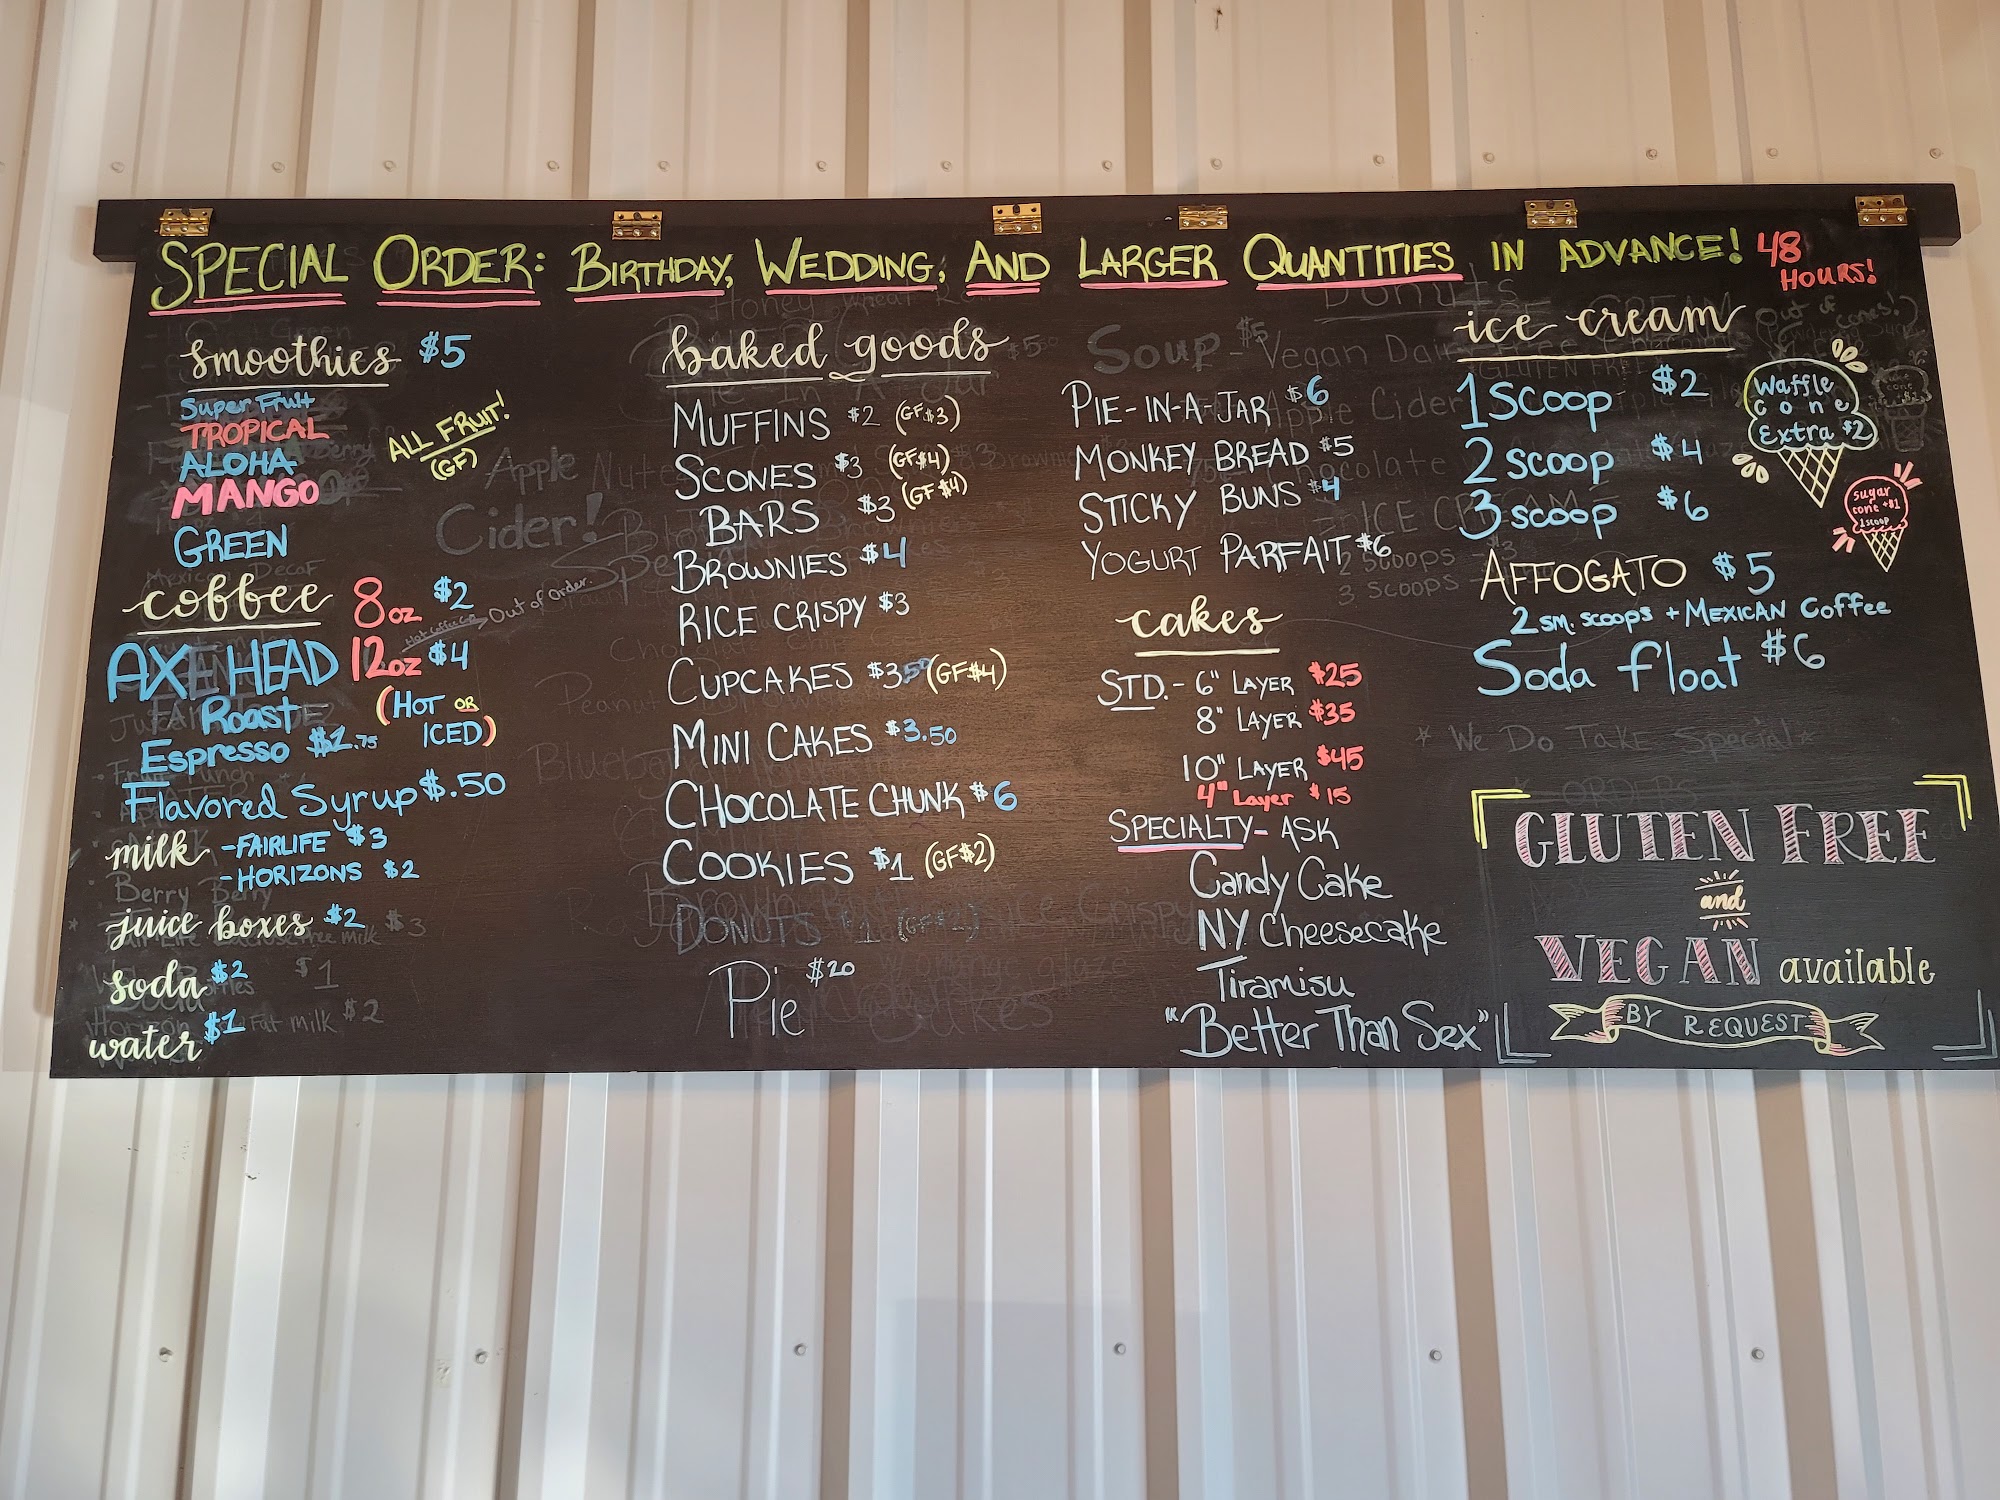 SPECIAL ORDER: BIRTHDAY, WEDDING, AND LARGER QUANTITIES IN ADVANCE! 48 HOURS!
smoothies $5
Super Fruit
TROPICAL
ALOHA
MANGO
GREEN
ALL FRUIT!
(GF)
Apple
Cider!
coffee 8oz $2
Out of Order.
AXE HEAD 12oz $4
Roast (HOT OR ICED)
Espresso $1.75
Flavored Syrup $.50
milk - FAIRLIFE $3
- HORIZONS $2
juice boxes $2
soda $2
water $1
baked goods
MUFFINS $2 (GF $3)
SCONES $3 (GF $4)
BARS $3 (GF $4)
BROWNIES $4
RICE CRISPY $3
CUPCAKES $3.50 (GF $4)
MINI CAKES $3.50
CHOCOLATE CHUNK $6
COOKIES $1 (GF $2)
DONUTS
Pie $20
Soup
PIE-IN-A-JAR $6
MONKEY BREAD $5
STICKY BUNS $4
YOGURT PARFAIT $6
cakes
STD. - 6" LAYER $25
8" LAYER $35
10" LAYER $45
4" Layer $15
SPECIALTY - ASK
Candy Cake
NY Cheesecake
Tiramisu
"Better Than Sex"
ice cream
1 SCOOP $2
2 SCOOP $4
3 SCOOP $6
Waffle
cone
Extra $2
sugar
cone +$1
1 scoop
AFFOGATO $5
2 SM. SCOOPS + MEXICAN COFFEE
Soda float $6
* We Do Take Special *
ORDERS
GLUTEN FREE
and
VEGAN available
BY REQUEST